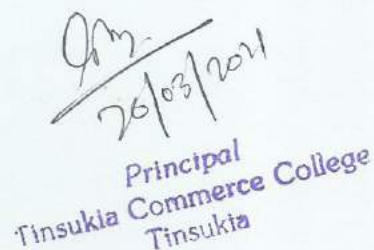 26/03/2021
Principal
Tinsukia Commerce College
Tinsukia